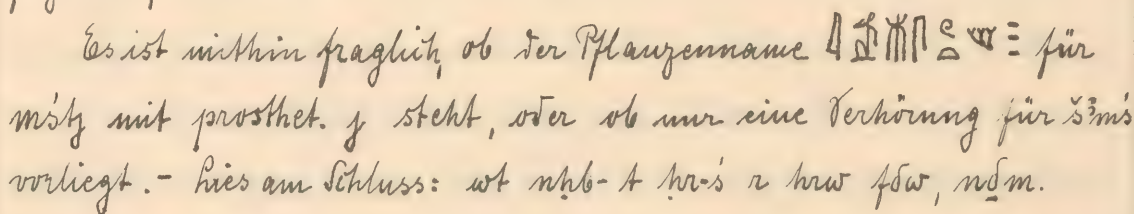 Es ist mithin fraglich, ob der Pflanzenname für
mśtj mit prosthet. j steht, oder ob nur eine Verhörung für šꜣmś
vorliegt. - Lies am Schluss: wt nḥb-t ḥr-ś r hrw fdw, nḏm.